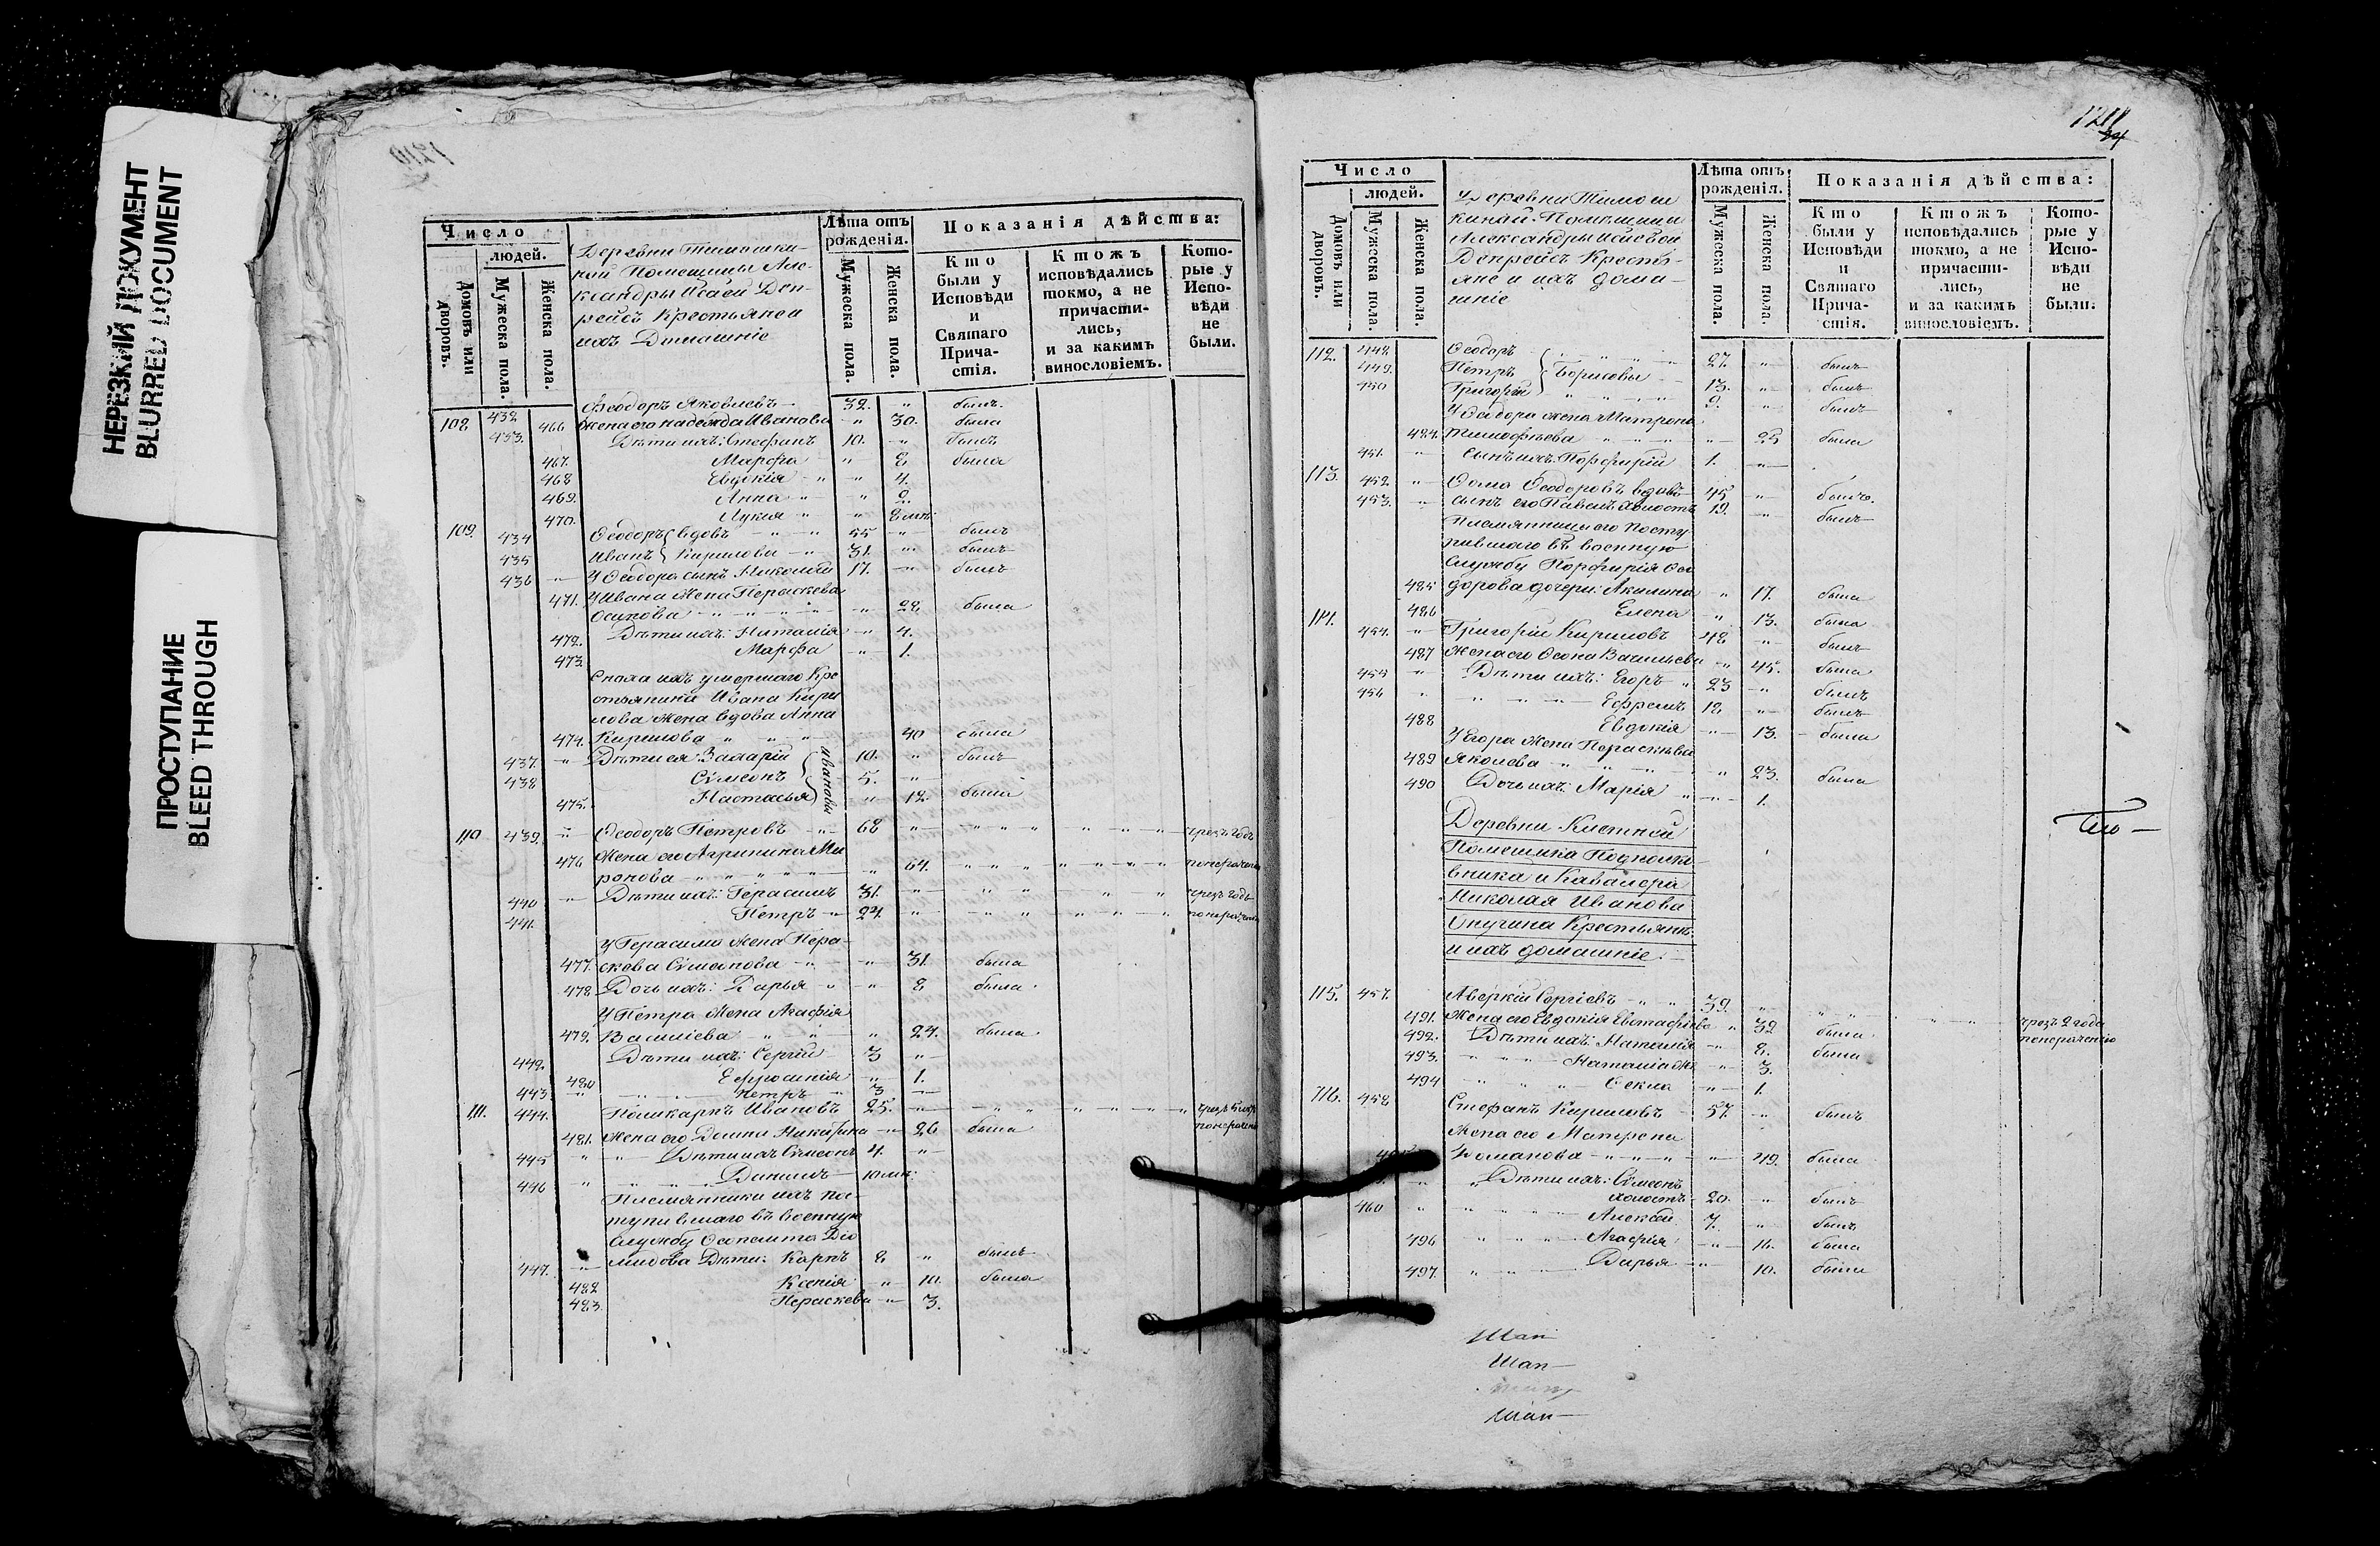 НЕРЕЗКИЙ ДОКУМЕНТ
BLURRED DOCUMENT
ПРОСТУПАНИЕ
BLEED THROUGH
Число
людей.
Домовъ или дворовъ.
Мужеска пола.
Женска пола.
Лѣта отъ рожденія.
Мужеска пола.
Женска пола.
Показанія дѣйства:
Кто были у Исповѣди и Святаго Причастія.
Ктожъ исповѣдались токмо, а не причастились, и за какимъ винословіемъ.
Которые у Исповѣди не были.
ксандры
Крестьяне и
ихъ Домашніе
108 432 Феодоръ Яковлевъ 32. былъ.
466 Жена его Надежда Иванова 30. была
433. Дѣти ихъ: Стефанъ 10. былъ
467. Марфа 8 была
468 Евдокія 4.
469. Анна 2.
470. Лукія
109. 434 Ѳеодоръ вдовъ 55 былъ
435 Иванъ Кирилова 31. былъ
436 У Ѳеодора сынъ Николай 17. былъ
471. У Ивана жена Пераскева
Осипова 28. была
472. Дѣти ихъ: Наталія 4.
473. Марфа 1.
Сноха ихъ умершаго Кре
стьянина Ивана Кири
лова жена вдова Анна
474. Кирилова 40 была
437. Дѣти ея: Захарій 10. былъ
438 Сѵмеонъ 5.
475. Настасья 12. была
Ивановы
110 439. Ѳеодоръ Петровъ 68 чрезъ годъ
476 Жена его Агрипина Ми
ронова 64. понераченію
440 Дѣти ихъ: Герасимъ 31. чрезъ годъ
441. Петръ 24. понераченію
У Герасима жена Пера
477. скева Сѵмеонова 31. была
478 Дочь ихъ: Дарья 8 была
У Петра жена Агафія
479. Василіева 24. была
442. Дѣти ихъ: Сергій 3
480 Ефросинія 1.
443. Петръ 3
111. 444. Поликарпъ Ивановъ 25.
481. Жена его Домна 26 была
445 Дѣти ихъ Сѵмеонъ 4.
446 Даниилъ
Племянники ихъ пос
тупившаго въ военную
службу
447. Дѣти: Карпъ 8 былъ
482 Ксенія 10. была
483. Пераскева 3.
1211
Число
людей.
Домовъ или дворовъ.
Мужеска пола.
Женска пола.
Лѣта отъ рожденія.
Мужеска пола.
Женска пола.
Показанія дѣйства:
Кто были у Исповѣди и Святаго Причастія.
Ктожъ исповѣдались токмо, а не причастились, и за какимъ винословіемъ.
Которые у Исповѣди не были.
Деревни
Александры
Кресть
яне и ихъ дома
шніе
112. 448 Ѳеодоръ 27. былъ
449. Петръ Борисовы 13. былъ
450 Григорій 9. былъ
У Ѳеодора жена Матрона
484. Тимофѣева 25 была
451. Сынъ ихъ: Порфирій 1.
113. 452. Ѳома Ѳеодоровъ вдовъ 45 былъ.
453. сынъ его Павелъ холостъ 19. былъ
Племянницы его посту
пившаго въ военную
службу Порфирія Ѳео
485 дорова дочери: Акилина 17. была
486 Елена 13. была
114. 454. Григорій Кириловъ 48 былъ
487 Жена его Васильева 45. была
455 Дѣти ихъ: Егоръ 23 былъ
456 Ефремъ 18 былъ
488 Евдокія 13. была
У Егора жена Пераскева
489 Яковлева 23. была
490 Дочь ихъ: Марія 1.
Деревни
Помещика Подполко
вника и Кавалера
Николая Иванова
Крестьяне
и ихъ домашніе.
115. 457. Аверкій Сергіевъ 39. чрезъ 2 года понераченію
491. Жена его Евдокія 32 была
492. Дѣти ихъ: Наталія 8. была
493. Наталія же 3.
494 Ѳекла 1.
116. 458 Стефанъ Кириловъ 57. былъ
Жена его Матрена
Романова 49. была
Дѣти ихъ: Сѵмеонъ
холостъ 20. былъ
460 Алексей 7. былъ
496 Агафія 16. была
497. Дарья 10. была